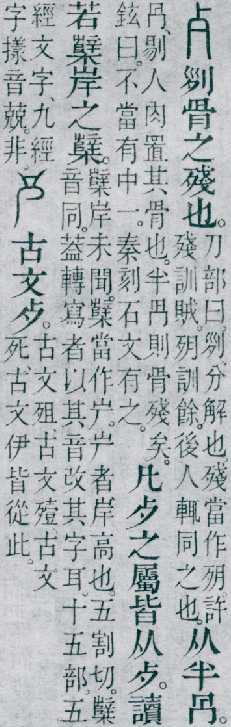 歺
𠛱骨之殘也。
刀部曰。𠛱、分解也。殘當作𣦼。許
殘訓賊。𣦼訓餘。後人輒同之也。
从半冎。
冎、剔人肉置其骨也。半冎則骨殘矣。
鉉曰。不當有中一。秦刻石文有之。
凡歺之屬皆从歺。讀
若櫱岸之櫱。
櫱岸未聞。櫱當作屵。屵者岸高也。五割切。櫱
音同。葢轉寫者以其音改其字耳。十五部。五
經文字、九經
字樣音兢。非。
𣦵
古文歺。
古文殂、古文殪、古文
死、古文伊皆從此。